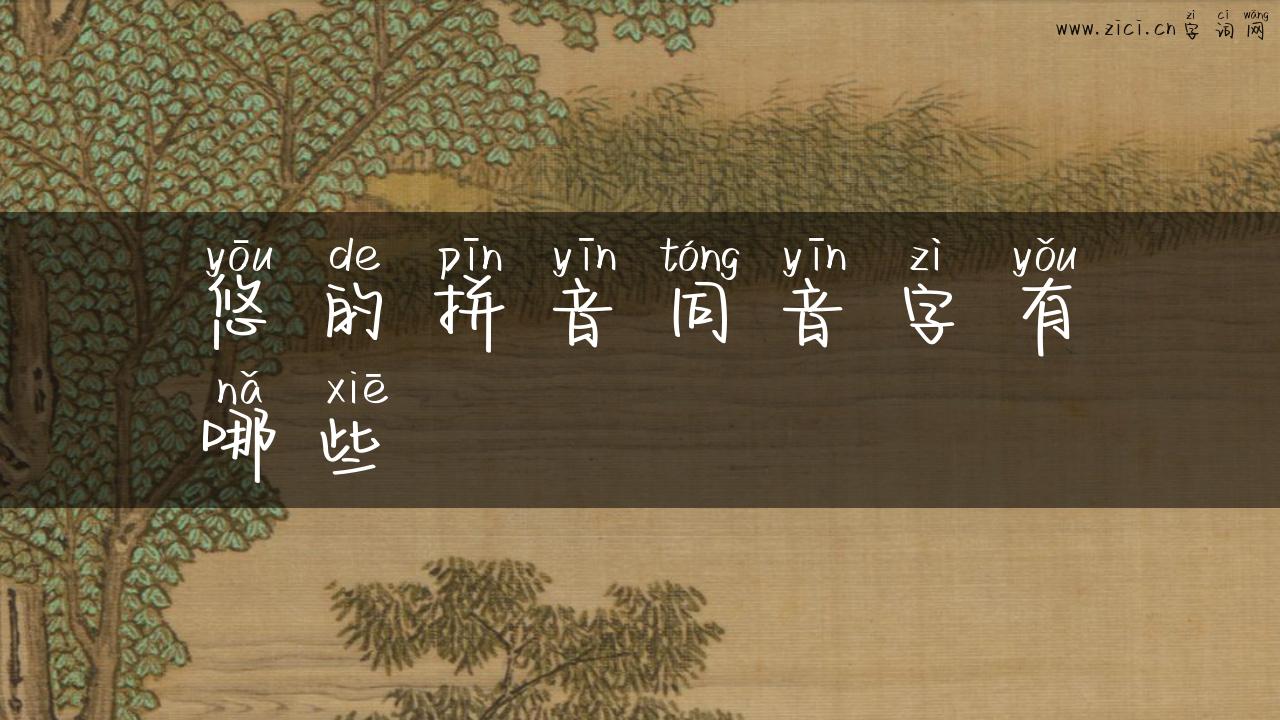 zì cí wǎng
www.zici.cn 字词网
yōu de pīn yīn tóng yīn zì yǒu
悠的拼音同音字有
nǎ xiē
哪些